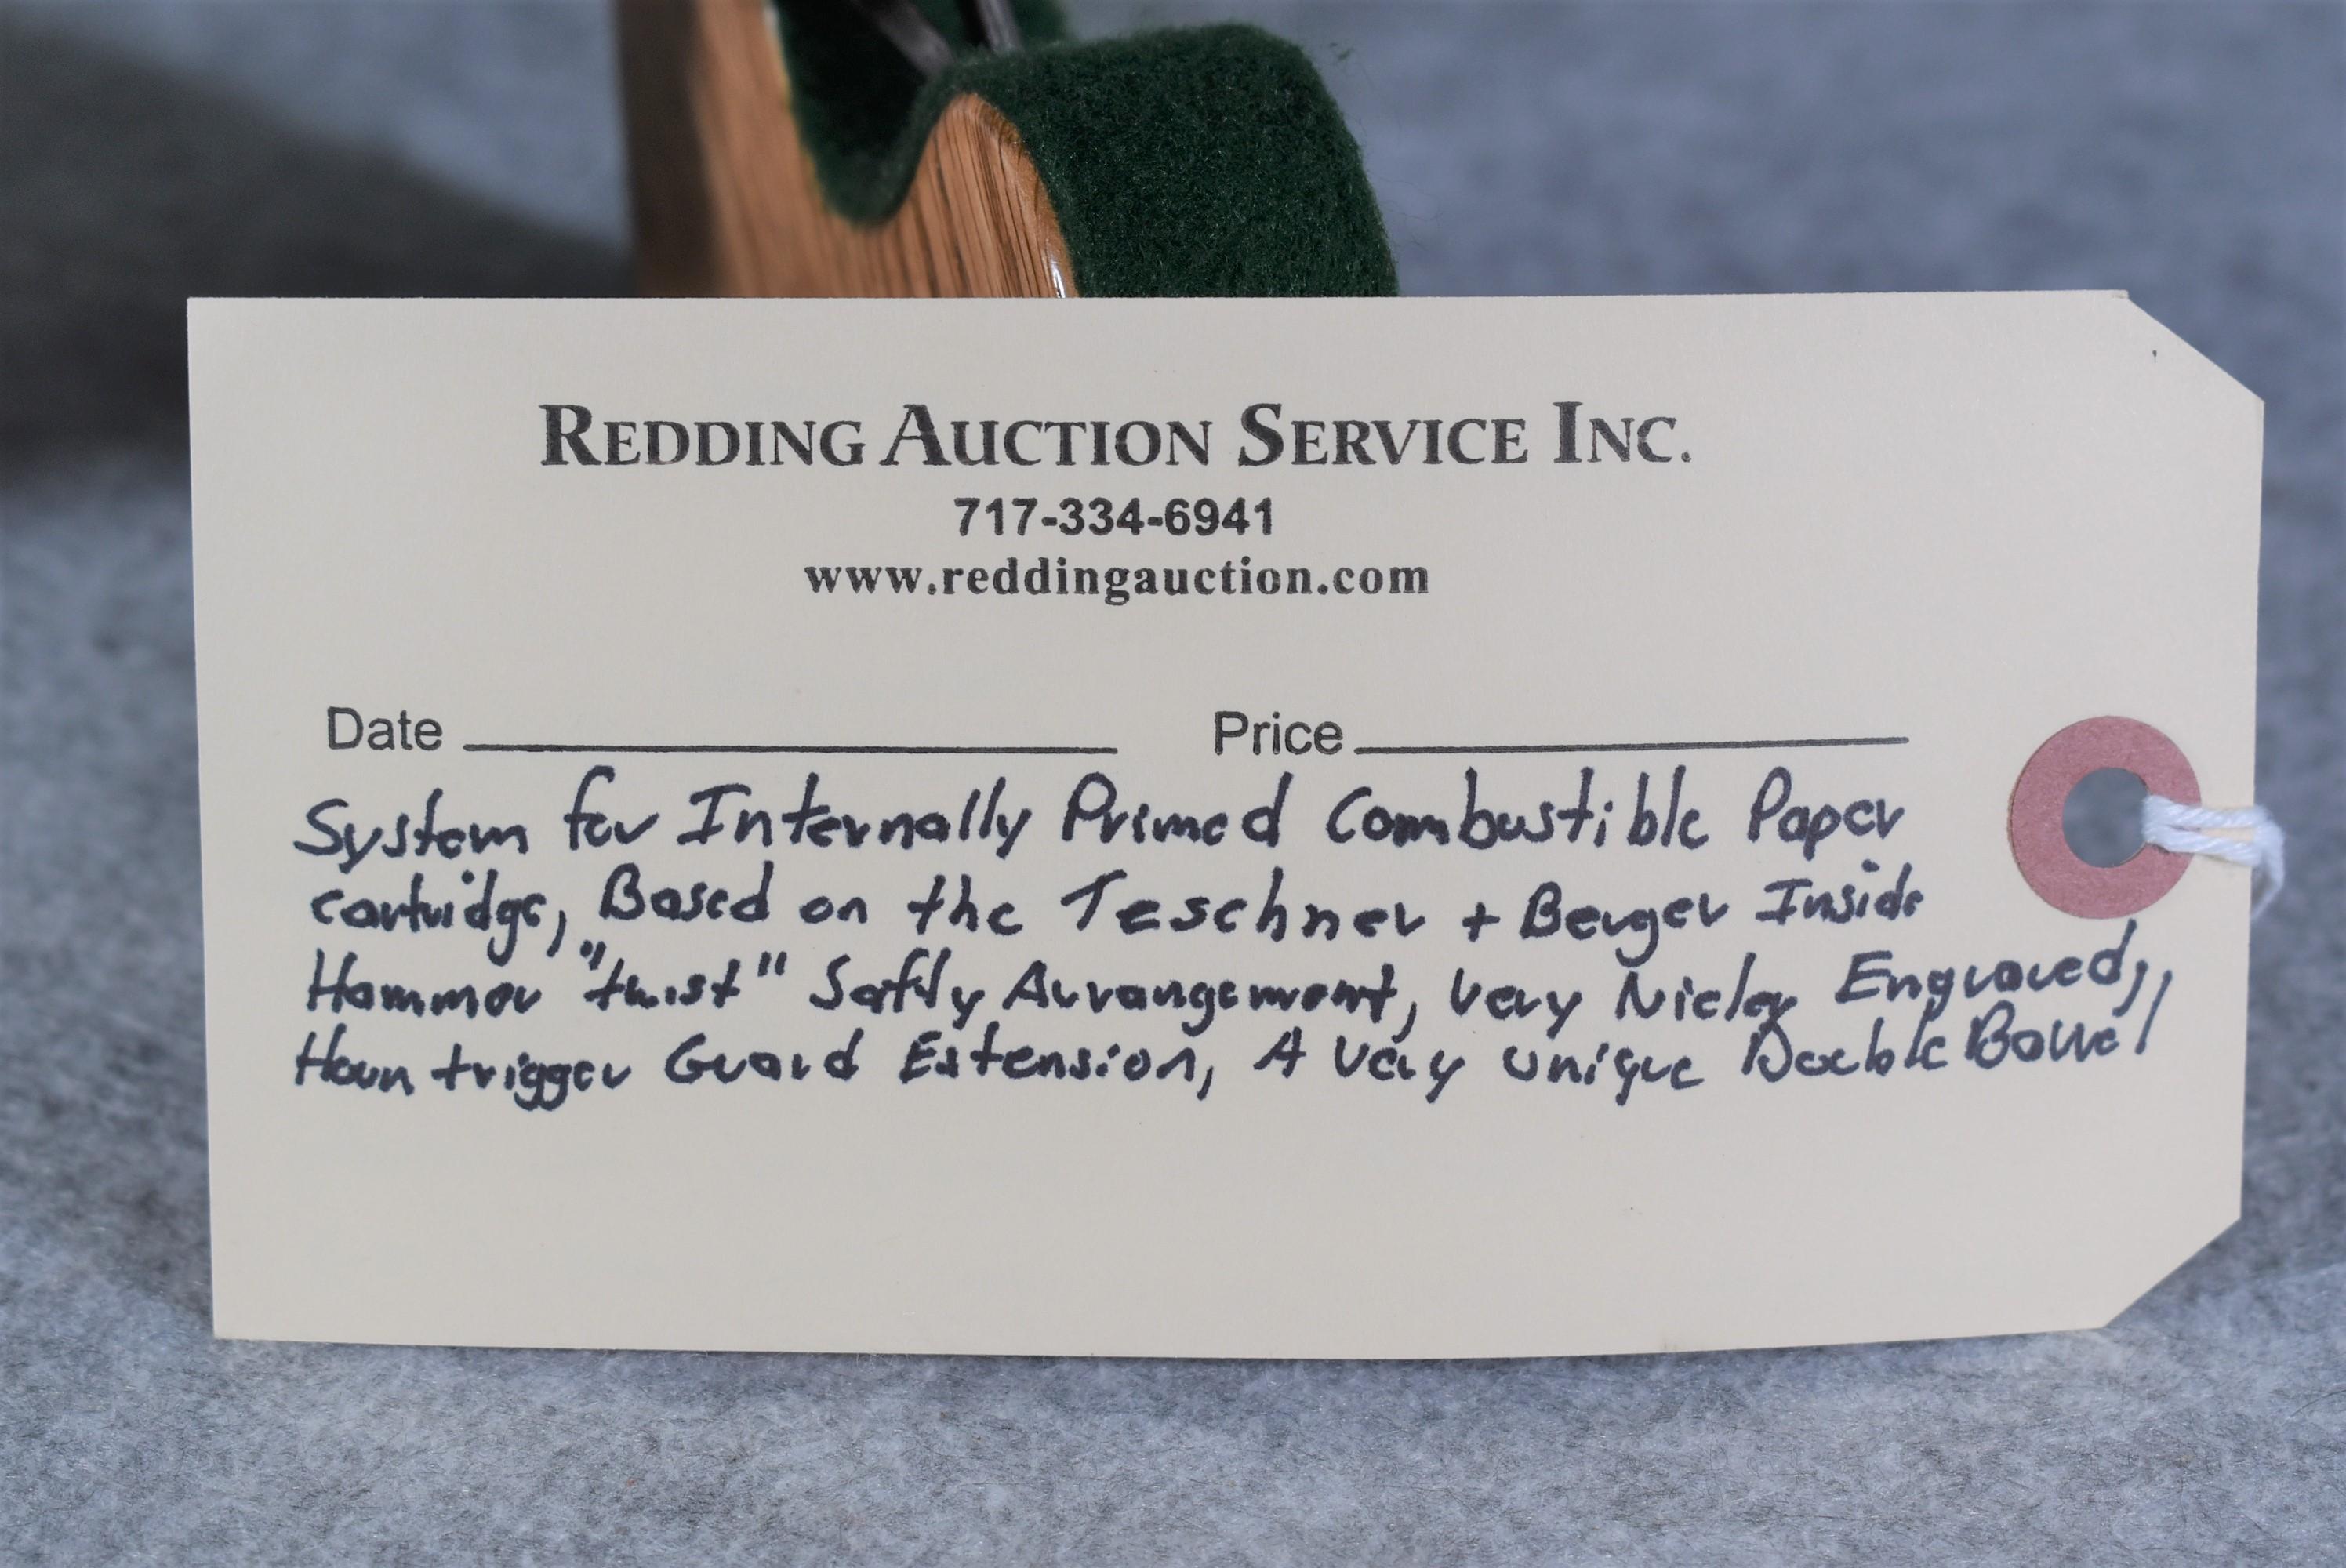 REDDING AUCTION SERVICE INC.
717-334-6941
www.reddingauction.com
Date Price
System for Internally Primed Combustible Paper
cartridge, Based on the Teschner + Berger Inside
Hammer "twist" Safty Arrangement, Very Nicley Engraved,
Horn trigger Guard Extension, A Very unique Double Barrel